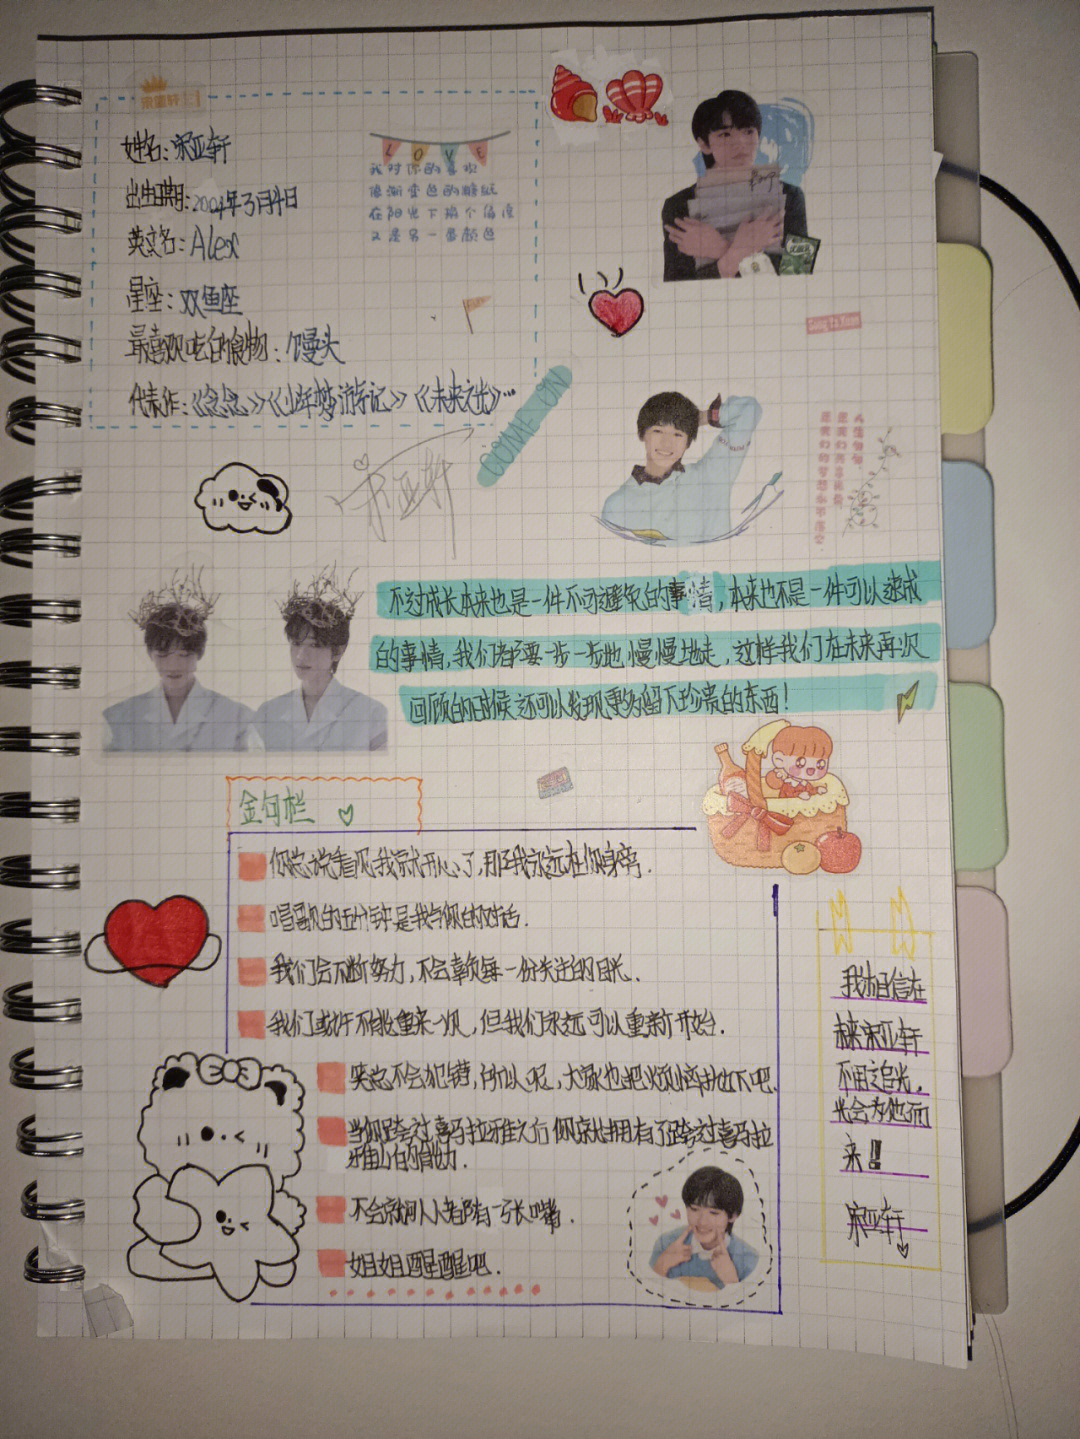 姓名：宋亚轩
出生日期：2004年3月4日
英文名：Alex
星座：双鱼座
最喜欢吃的食物：馒头
代表作：《念念》《少年梦游记》《未来之光》…
LOVE
我对你的喜欢
像渐变色的糖纸
在阳光下换个角度
又是另一番颜色
COME ON
宋亚轩
不过成长本来也是一件不可避免的事情，本来也不是一件可以速成
的事情，我们都要一步一步地，慢慢地走，这样我们在未来再次
回顾的时候还可以发现更多留下珍贵的东西！
金句栏
你总说看见我就开心了，那我永远在你身旁．
唱歌的五分钟是我与你的对话．
我们会不断努力，不会辜负每一份关注的目光．
我们或许不能重来一次，但我们永远可以重新开始．
笑总不会犯错，所以呢，大家也把烦恼都放下吧．
当你跨过喜马拉雅之后你就拥有了跨过喜马拉
雅山的能力．
不会就问人小者都有一张嘴．
姐姐醒醒吧．
我相信在
未来宋亚轩
不用追光，
光会为他而
来!!!
宋亚轩